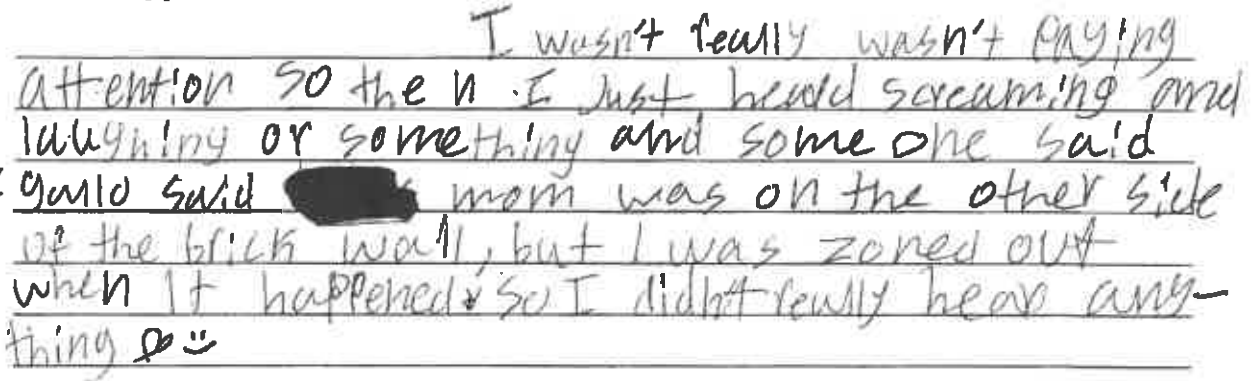 I wasn't really wasn't paying
attention so then I Just heard screaming and
laughing or something and someone said
said mom was on the other side
of the brick wall, but I was zoned out
when it happened so I didn't really hear any-
thing